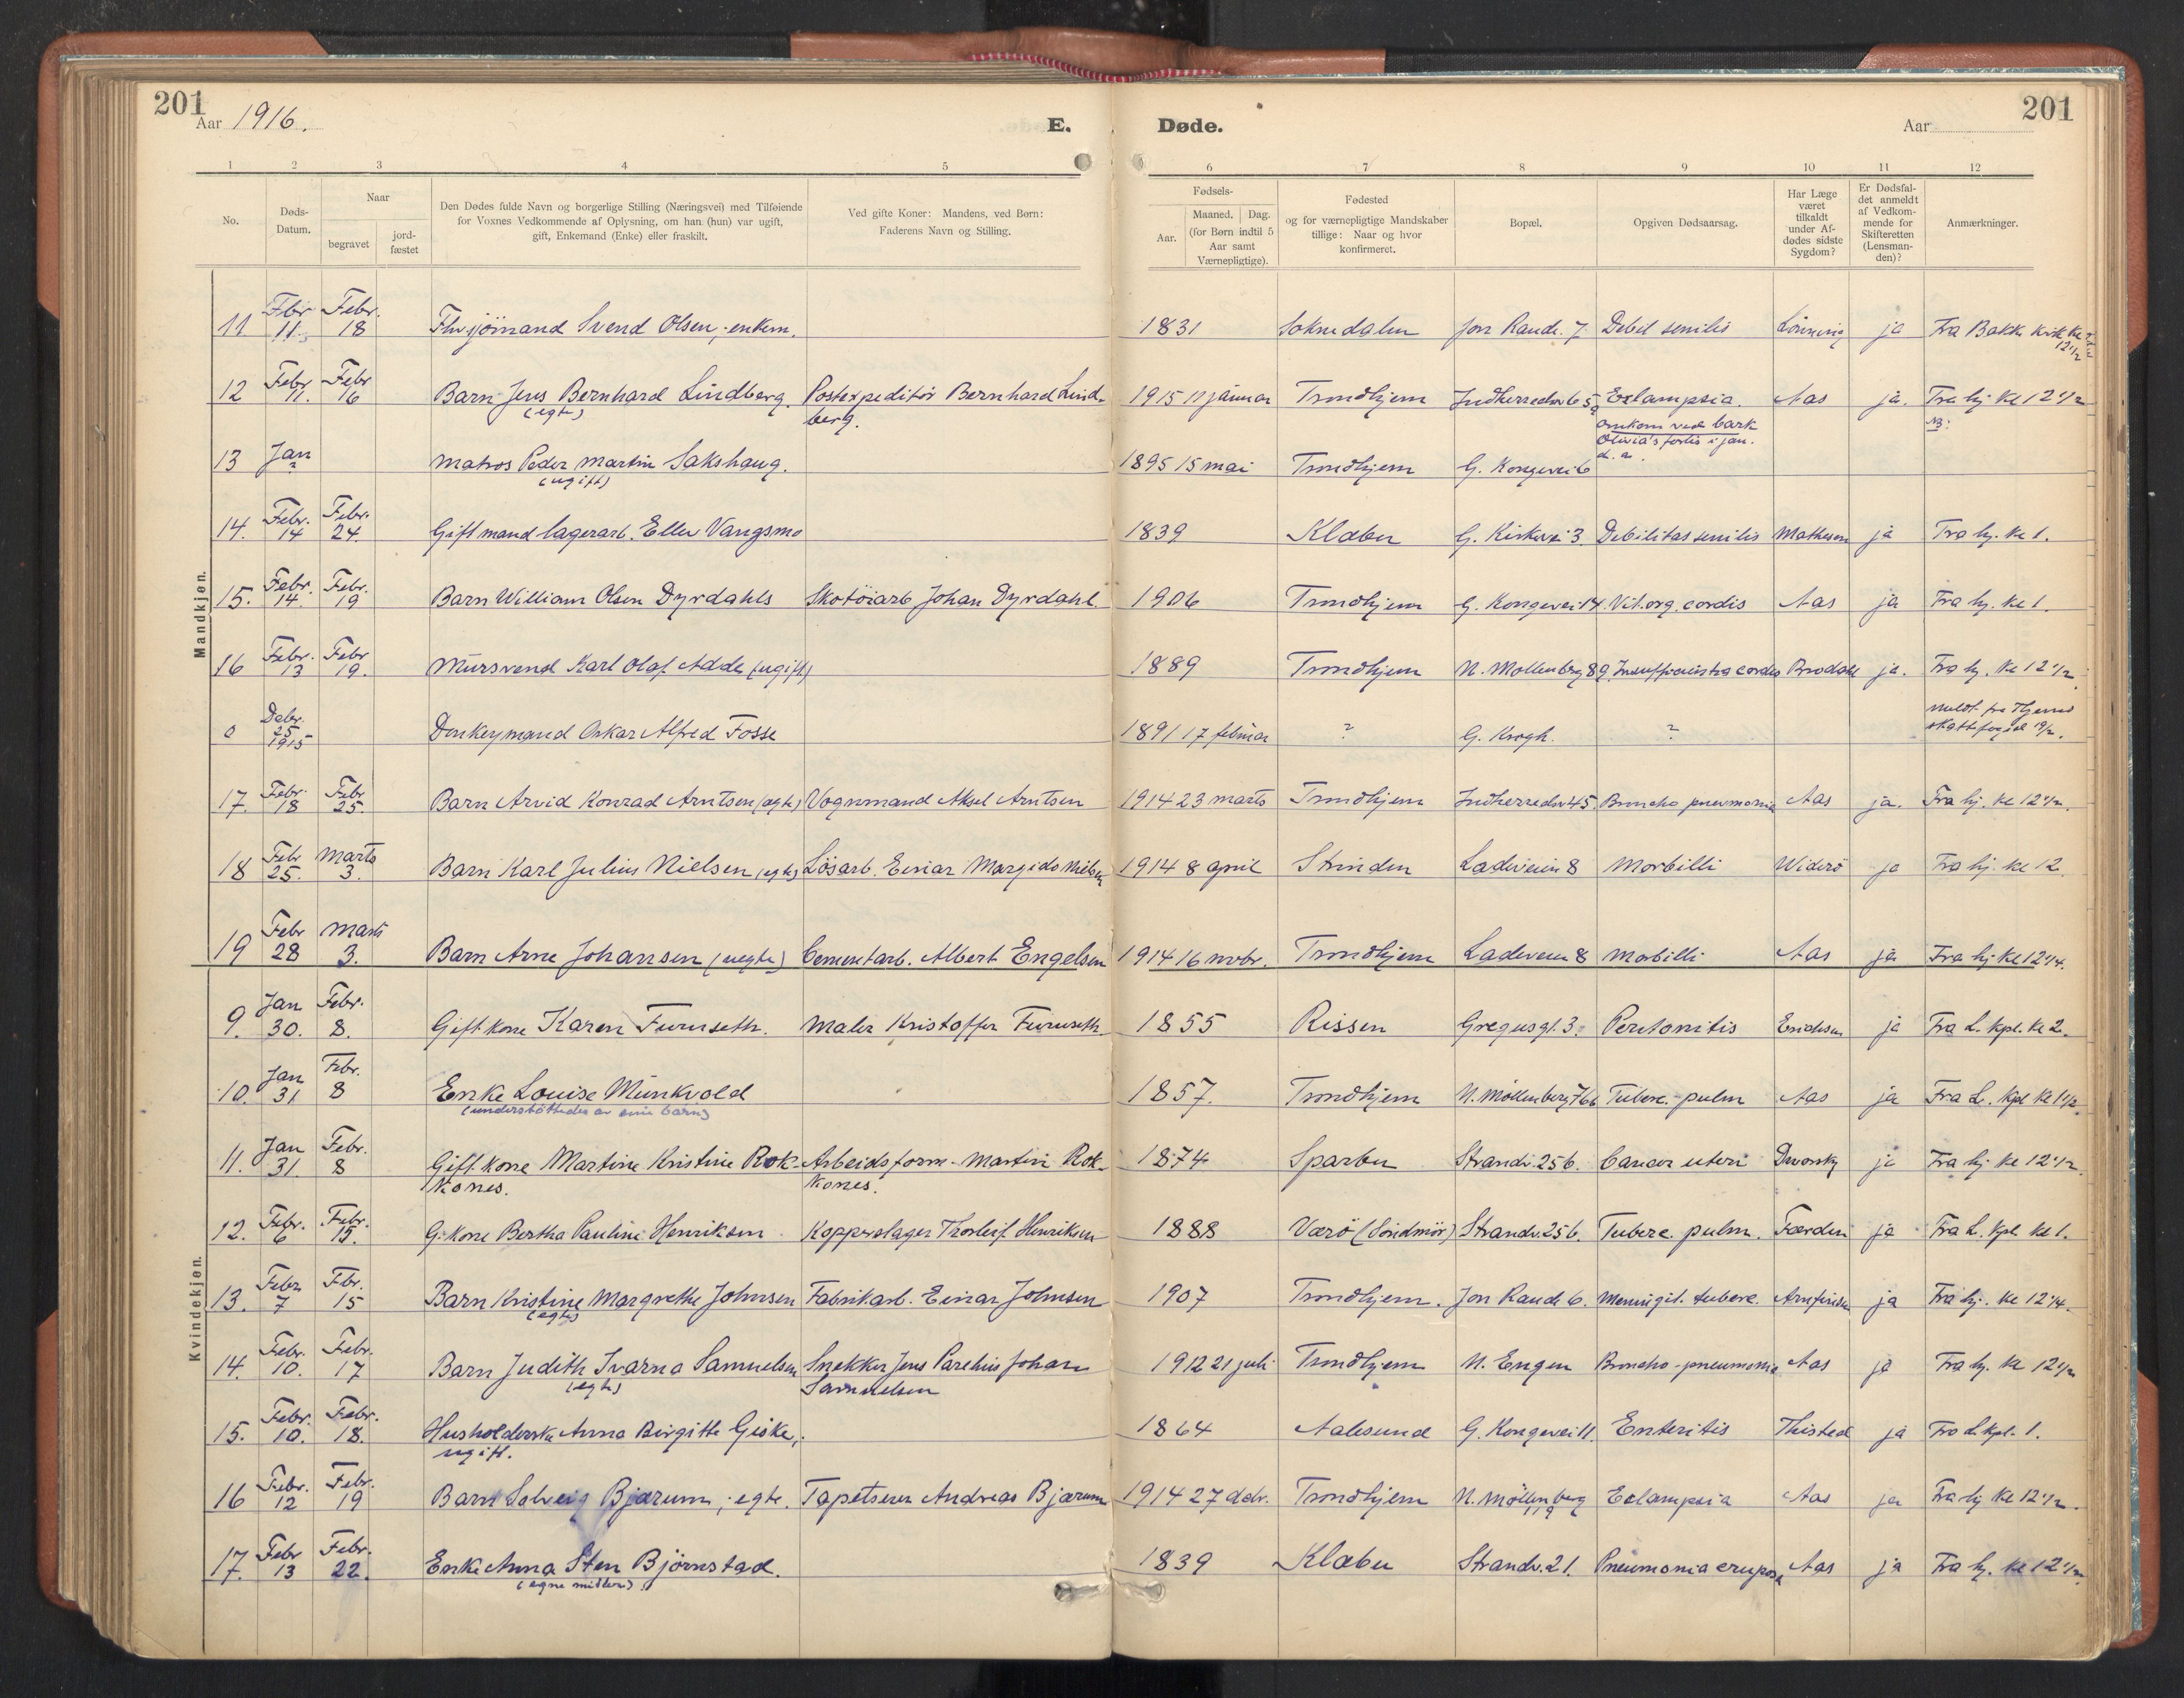 201
Aar 1916.
E.
Døde.
Aar
201
1 2 3 4 5 6 7 8 9 10 11 12
No.
Døds-Datum.
Naar
begravet
jord-fæstet
Den Dødes fulde Navn og borgerlige Stilling (Næringsvei) med Tilføiende
for Voxnes Vedkommende af Oplysning, om han (hun) var ugift,
gift, Enkemand (Enke) eller fraskilt.
Ved gifte Koner: Mandens, ved Børn:
Faderens Navn og Stilling.
Fødsels-
Aar.
Maaned. Dag.
(for Børn indtil 5
Aar samt
Værnepligtige).
Fødested
og for værnepligtige Mandskaber
tillige: Naar og hvor
konfirmeret.
Bopæl.
Opgiven Dødsaarsag.
Har Læge
været
tilkaldt
under Af-
dødes sidste
Sygdom?
Er Dødsfal-
det anmeldt
af Vedkom-
mende for
Skifteretten
(Lensman-
den)?
Anmærkninger.
Mandkjøn.
11 Fbr 11. Febr. 18 Svend Olsen, enkem. 1831 Soknedalen Jon Raude. 7 Debil senilis Lönning ja Fra Bakke Kirke Kl 12 1/2
12 Febr 11. Febr 16 Barn Jens Bernhard Lindberg. Postexpeditör Bernhard Lind- 1915 11 januar Trondhjem Indherredsv 65a Eclampsia. Aas ja. Fra hj Kl 12 1/2
(egte) berg. omkom ved bark NB:
Olivia's forlis i jan.
13 Jan ? Matros Peder Martin Sakshaug. 1895 15 mai Trondhjem G. Kongevei 6 d. a.
(ugift)
14. Febr. 14 Febr. 24. Gift mand lagerarb. Ellev Vangsmo 1839 Klæbu G. Kirkevei 3. Debilitas senilis Matheson ja Fra hj. Kl 1.
15. Febr. 14. Febr. 19 Barn William Olsen Dyrdahls Skotöiarb Johan Dyrdahl. 1906 Trondhjem G. Kongevei 14 Vit. org. cordis Aas ja Fra hj. Kl 1.
16 Febr. 13 Febr 19. Mursvend Karl Olaf Adde (ugift) 1889 Trondhjem N. Mollenberg 89 Insufficientia cordis Brodahl ja. Fra hj. Kl 12 1/2
0 Debr. 25 1915 Donkeymand Oskar Alfred Fosse 1891 17 februar ? G. Krogh. ? meldt fra Thjems
skattefogd 19/2.
17. Febr. 18 Febr 25. Barn Arvid Konrad Arntsen (egte) Vognmand Aksel Arntsen 1914 23 marts Trondhjem Indherredsv 45. Broncho pneumonia Aas ja. Fra hj. Kl 12 1/2.
18 Febr 25. Marts 3. Barn Karl Julius Nielsen (egte) Lösarb. Einar Margido Nielsen 1914 8 april Strinden Ladeveien 8 Morbilli Wideröe ja Fra hj. Kl 12
19 Febr 28 Marts 3. Barn Arne Johansen (uegte) Cementarb. Albert Engelsen 1914 16 novbr. Trondhjem Ladeveien 8 Morbilli Aas ja Fra hj Kl 12 1/4.
Kvindekjøn.
9. Jan 30. Febr. 8. Gift kone Karen Furuseth. Maler Kristoffer Furuseth 1855 Rissen Gregusgt. 3. Peretonitis Erichsen ja Fra L. kpl. Kl 2.
10. Jan 31 Febr. 8 Enke Louise Munkvold 1857. Trondhjem N. Möllenberg 76b Tuberc. pulm Aas ja Fra L. Kpl Kl 1 1/2.
(understöttedes av sine barn)
11. Jan 31. Febr. 8 Gift kone Martine Kristine Rok- Arbeidsform. Martin Rok- 1874 Sparbu Strandv. 25 b. Cancer uteri Dworsky ja Fra hj Kl 12 1/2.
kones. kones.
12. Febr. 6 Febr. 15. G. Kone Bertha Pauline Henriksen Kopperslager Thorleif Henriksen 1888 Værö (Söndmör) Strandv. 25 b. Tuberc. pulm. Færden ja Fra L. Kpl. Kl 1.
13. Febr 7 Fbr. 15 Barn Kristine Margrethe Johnsen Fabrikarb. Einar Johnsen 1907 Trondhjem. Jon Raude 6. Meningit. tuberc. ja Fra hj. Kl 12 1/4.
(egte)
14. Febr. 10. Febr. 17 Barn Judith Ivarna Samuelsen Snekker Jens Parelius Johan 1912 21 juli Trondhjem N. Engen Broncho-pneumonia Aas ja Fra hj. Kl 12 1/2
(egte) Samuelsen
15. Febr. 10. Febr. 18. Husholderske Anna Birgitte Giske, 1864 Aalesund G. Kongevei 11. Enteritis Thisted ja Fra L. kpl. 1.
ugift.
16 Febr. 12 Febr. 19 Barn Solveig Bjærum, egte. Tapetserer Andreas Bjærum 1914 27 debr. Trondhjem N. Möllenberg Eclampsia Aas ja Fra hj Kl 12 1/2.
119
17. Febr 13 Febr. 22. Enke Anna Sten Björnstad. 1839 Klæbu Strandv. 21. Pneumonia cruposa Aas ja Fra hj. Kl 12 1/2.
(egne midler)